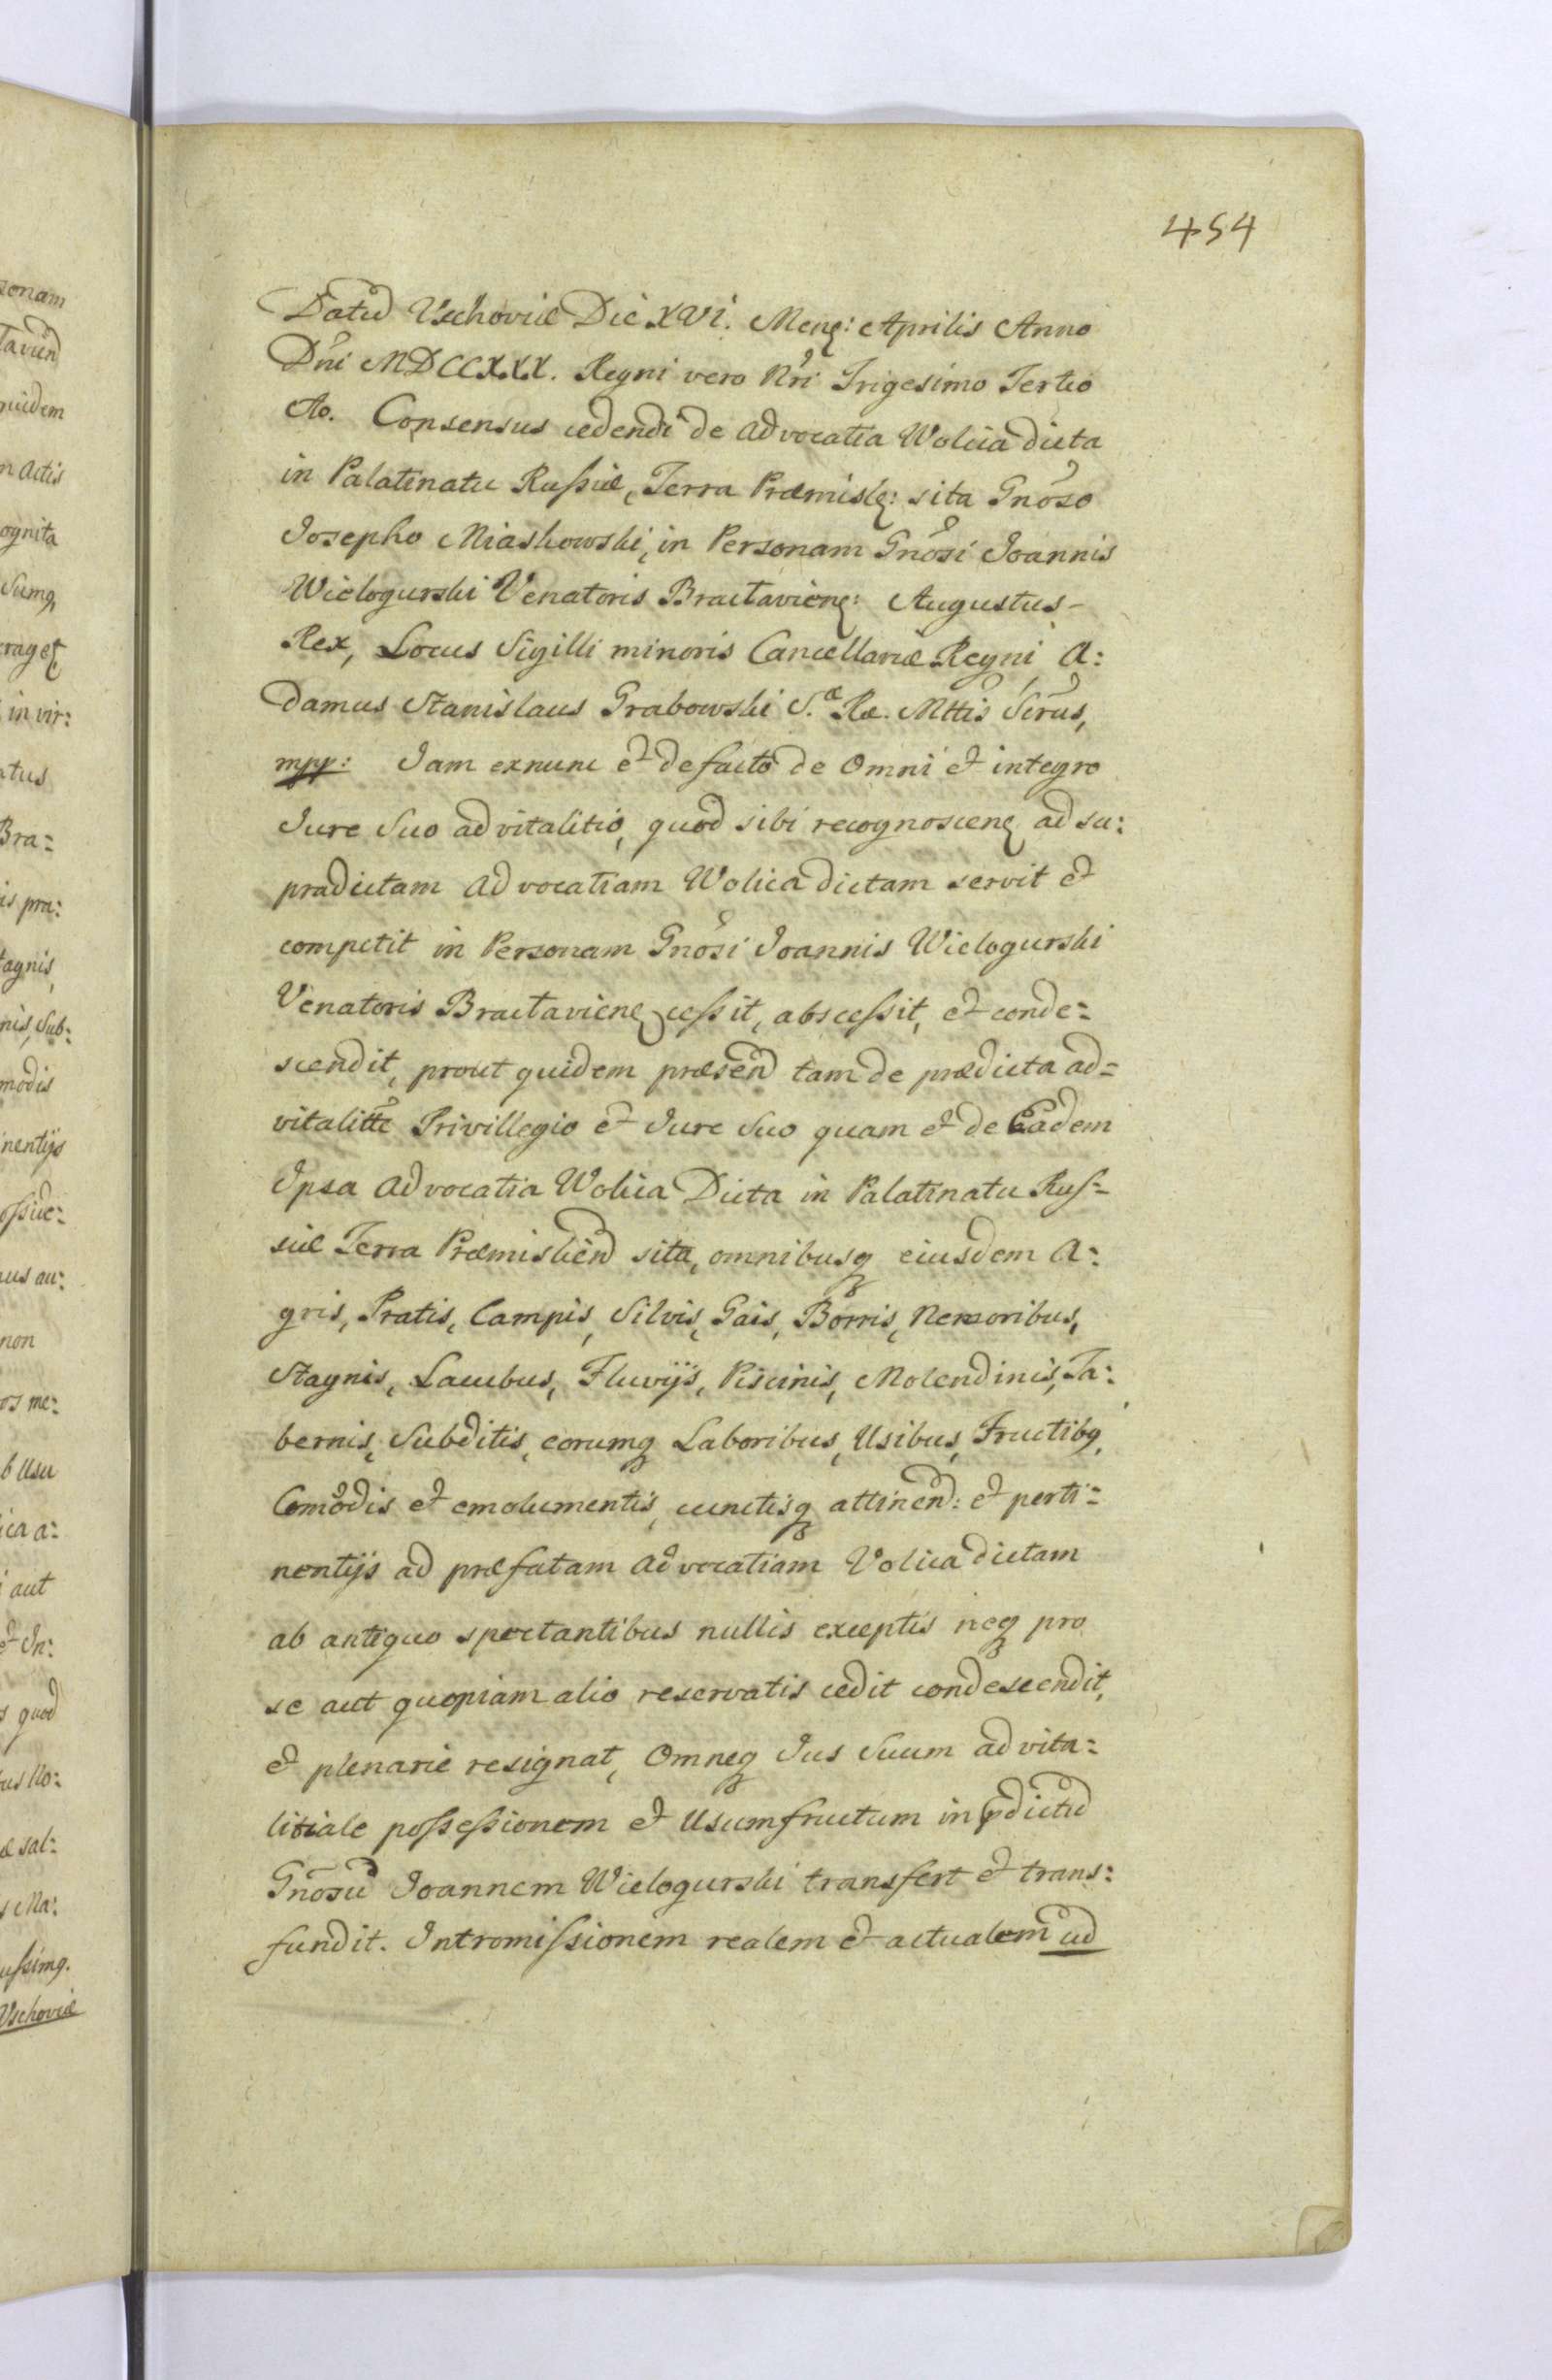 454
Datũ Vschoviæ Die XVI. Mens: Aprilis Anno
Dni MDCCXXX. Regni vero Nri Trigesimo Tertio
Ao. Consensus cedendi de Advocatia Wolica dicta
in Palatinatu Russiæ, Terra Præmisl: sita Gnoso
Josepho Miaskowski, in Personam Gnosi Joannis
Wielogurski Venatoris Bractaviens: Augustus
Rex, Locus Sigilli minoris Cancellariæ Regni, A:
damus Stanislaus Grabowski S.æ Ræ. Mttis Scrus,
mpp: Jam exnunc et defacto de Omni et integro
Jure Suo advitalitio, quod sibi recognoscens ad su:
pradictam Advocatiam Wolica dictam servit et
competit in Personam Gnosi Joannis Wielogurski
Venatoris Bractaviens cessit, abscessit, et conde=
scendit, prout quidem præsend tam de prædicta ad=
vitalitte Privillegio et Jure Suo quam et de Eadem
Ipsa Advocatia Wolica Dicta in Palatinatu Rus=
siæ Terra Præmislien sita, omnibusq eiusdem A:
gris, Pratis, Campis, Silvis, Gais, Borris, Nemoribus,
Stagnis, Lacubus, Fluvijs, Piscinis, Molendinis, Ta:
bernis, Subditis, eorumq Laboribus, Usibus, Fructibq,
Comodis et emolumentis, cunctisq attinend: et perti=
nentijs ad præfatam Advocatiam Volica dictam
ab antiquo spectantibus nullis exceptis neq pro
se aut quopiam alio reservatis cedit condescendit,
et plenarie resignat, Omneq Jus Suum advita=
litiale possessionem et Usumfructum in pdictũ
Gnosũ Joannem Wielogurski transfert et trans:
fundit. Intromissionem realem et actualem ad